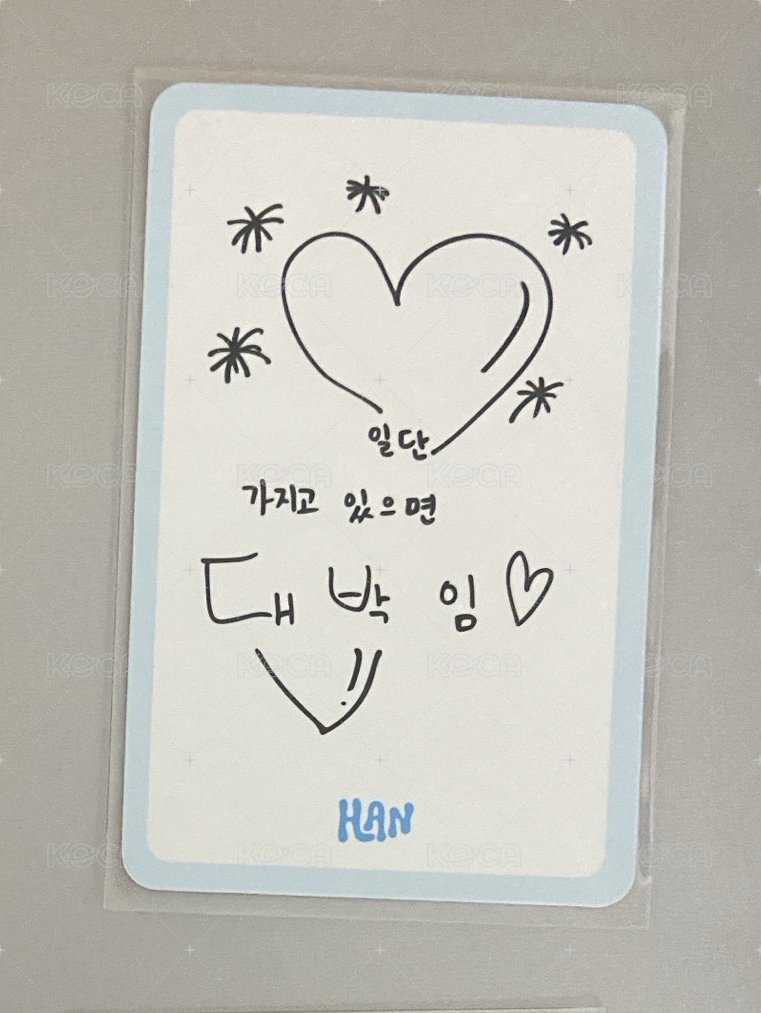 일단
가지고 있으면
대박임♡
HAN